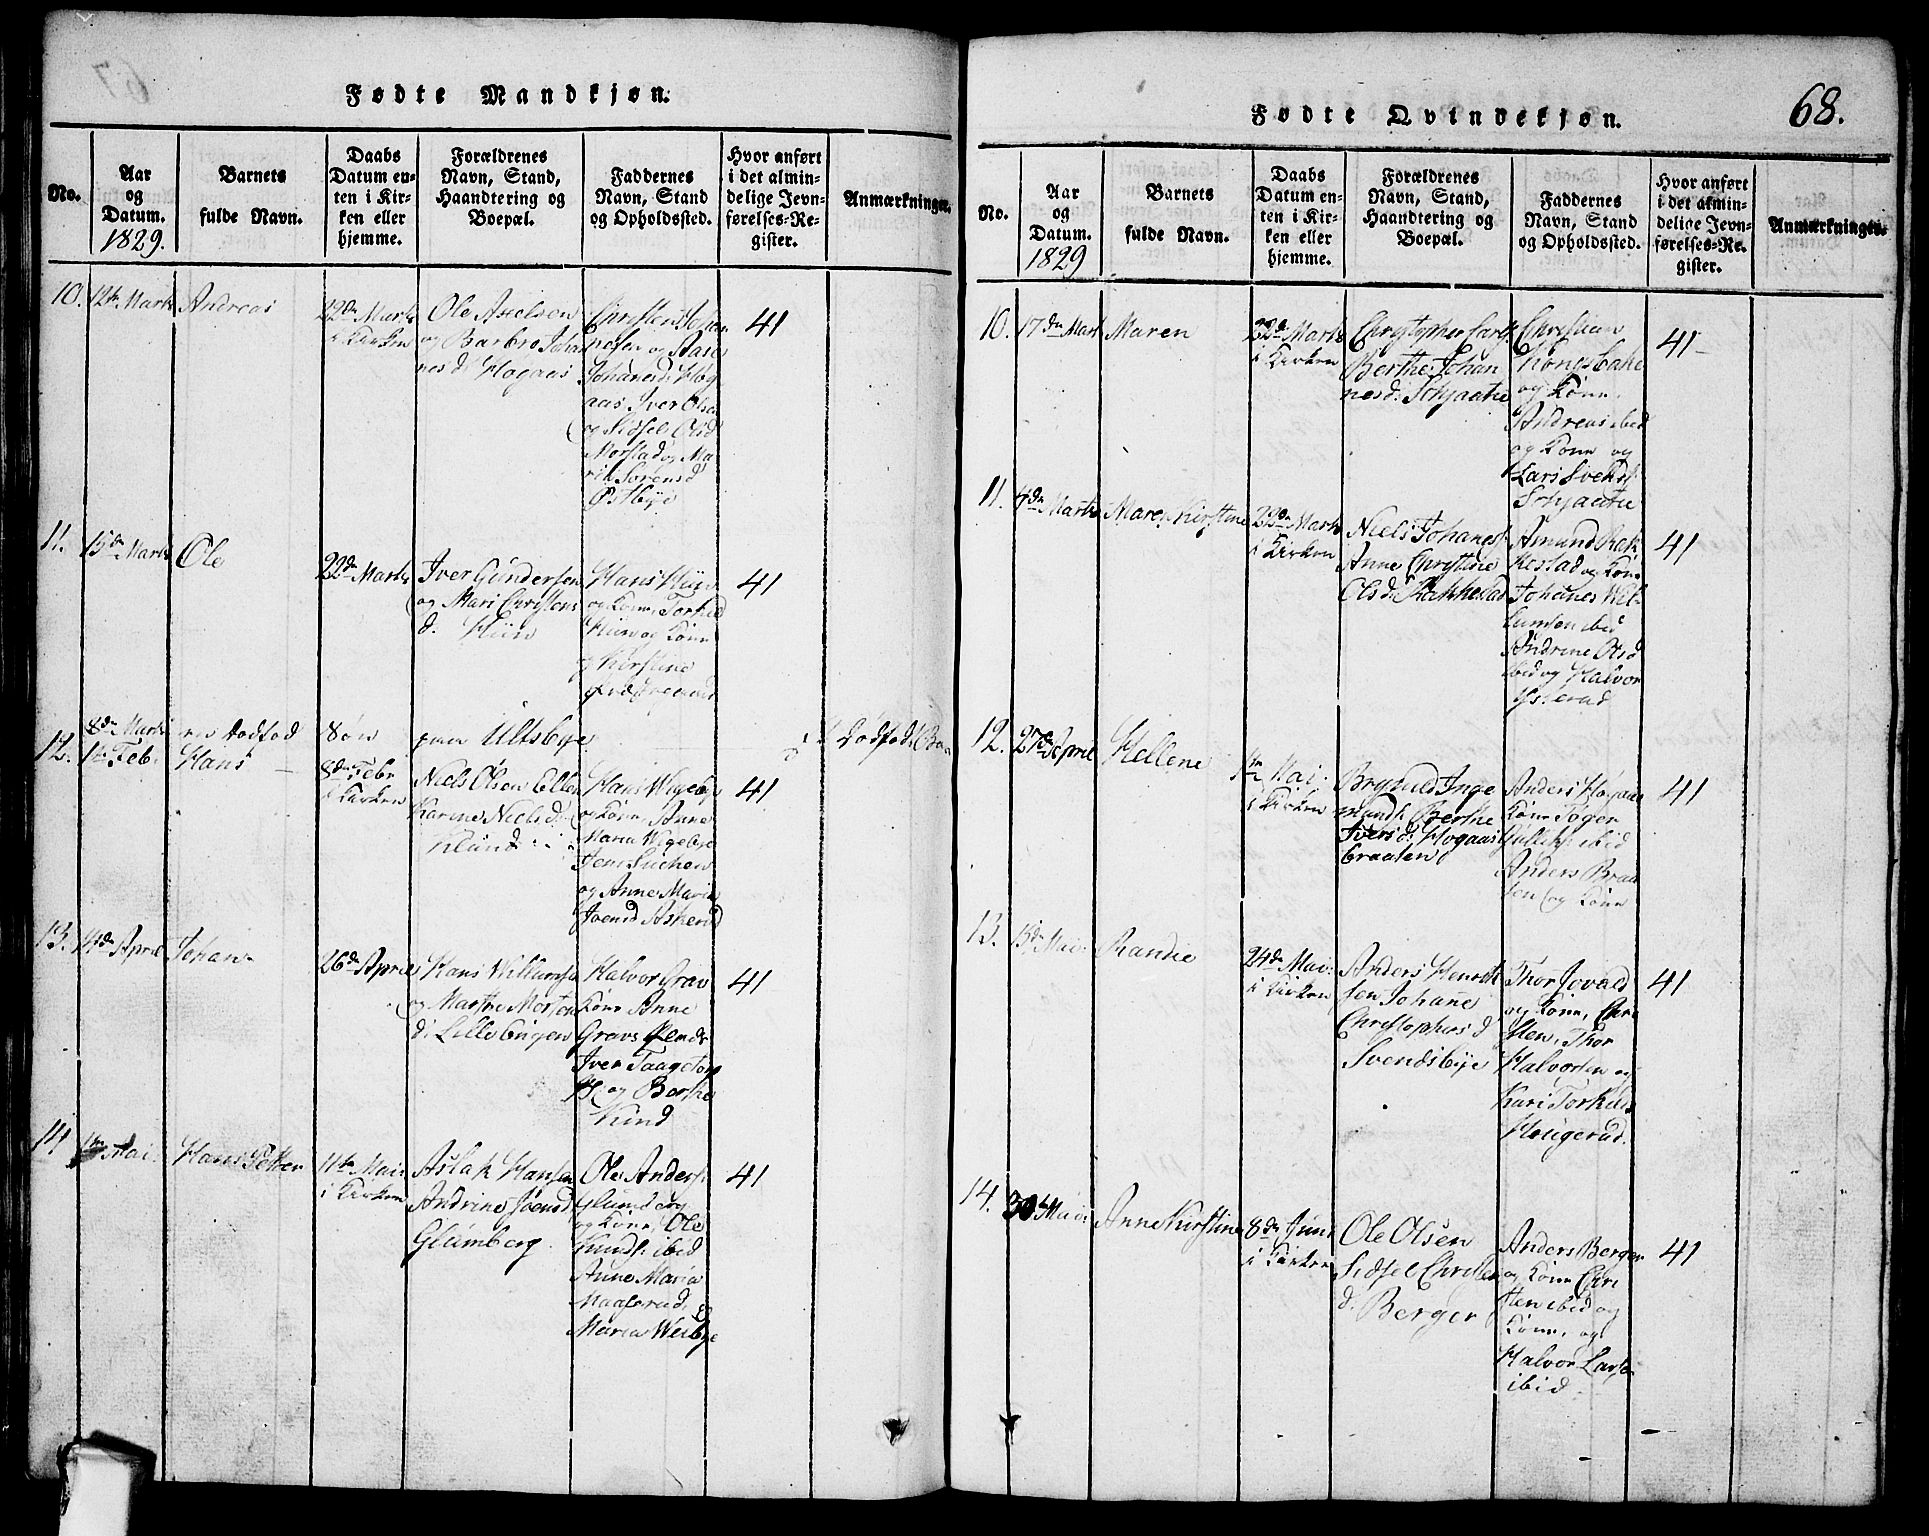 Fødte Mandkjøn.
No.
Aar
og
Datum.
1829.
Barnets
fulde Navn.
Daabs
Datum en-
ten i Kir-
ken eller
hjemme.
Forældrenes
Navn, Stand,
Haandtering og
Boepæl.
Faddernes
Navn, Stand
og Opholdssted.
Hvor anført
i det almin-
delige Jevn-
førelses-Re-
gister.
Anmærkninger.
10.
12te Marts
Andreas
22de Marts
i Kirken
Ole Axelsen
og Barbro Johan
nesd: Hogaas
Christen Johan
nesen og
Johanesd: Høg
aas Iver Olsen
og Sidsel Olsd
Morstad og Ma
ri Sørensd
Østbye
41
11.
15de Marts
Ole
22de Marts
Iver Gundersen
og Mari Christens
d. Hiin
Hans
og Kone, Torkild
og Kone
og Kirstine
41
8de Marts
dødfød
Søn
paa Ultsbye
Dødfød
12.
1te Feb:
Hans
8de Febr
i Kirken
Niels Olsen Ellen
Karine Nielsd:
Klund
Hans Wigebye
og Kone, Anne
Maria Wigebye
Jens
og Anne Maria
Joensd Askerud
41
13.
14de April
Johan
26de April
Hans Willumsen
og Marthe Morten
d: Lille Engen
Halvor Grav
Kone Anne
Gravs
Iver Taageton
og Berthe
Kind
41
14
1te Mai.
Hans Petter
11te Mai
i Kirken
Aslak Hansen
Andrine Joensd
Glumberg
Ole Anders:
Glumberg
og Kone, Ole
Knuds: ibid
Anne Maria
Maaserud,
Maria Weibye
41
68.
Fødte Qvindekjøn.
No.
Aar
og
Datum.
1829
Barnets
fulde Navn.
Daabs
Datum en-
ten i Kir-
ken eller
hjemme.
Forældrenes
Navn, Stand,
Haandtering og
Boepæl.
Faddernes
Navn, Stand
og Opholdssted.
Hvor anført
i det almin-
delige Jevn-
førelses-Re-
gister.
Anmærkninger.
10.
17de Marts
Maren
22de Marts
i Kirken
Christopher Carls:
Berthe Johan
nesd:
Christian
Kongsbakke
og Kone,
Andreas ibid
og Kone og
Lars Svends:
41
11.
4de Marts
Maren Kirstine
22de Marts
i Kirken
Niels Johanes:
Anne Christine
Olsd: Rakkestad
Amund Rak
kestad og Kone
Johanes Wil
lumsen ibid
Andrine Olsd
ibid og Halvor
41
12.
27de April
Hellene
Mai.
i Kirken
Brynild Inge
munds: Berthe
Iversd: Hogaas
braaten
Anders Høgaas
Kone
ibid
Anders Braa
ten og Kone
41
13.
15de Mai:
Randie
24de Mai:
i Kirken
Anders Henrik
sen Johane
Christophers d
Svendsbye
Thor
og Kone, Chri
sten, Thor
Halvorsen og
Kari Torkilds
Hougerud.
41
14.
30te Mai:
Anne Kirstine
8de Juni
i Kirken
Ole Olsen
Sidsel Christen
d. Berger
Anders Berger
og Kone Chri
sten ibid og
Kone, og
Halvor Larsen
ibid.
41